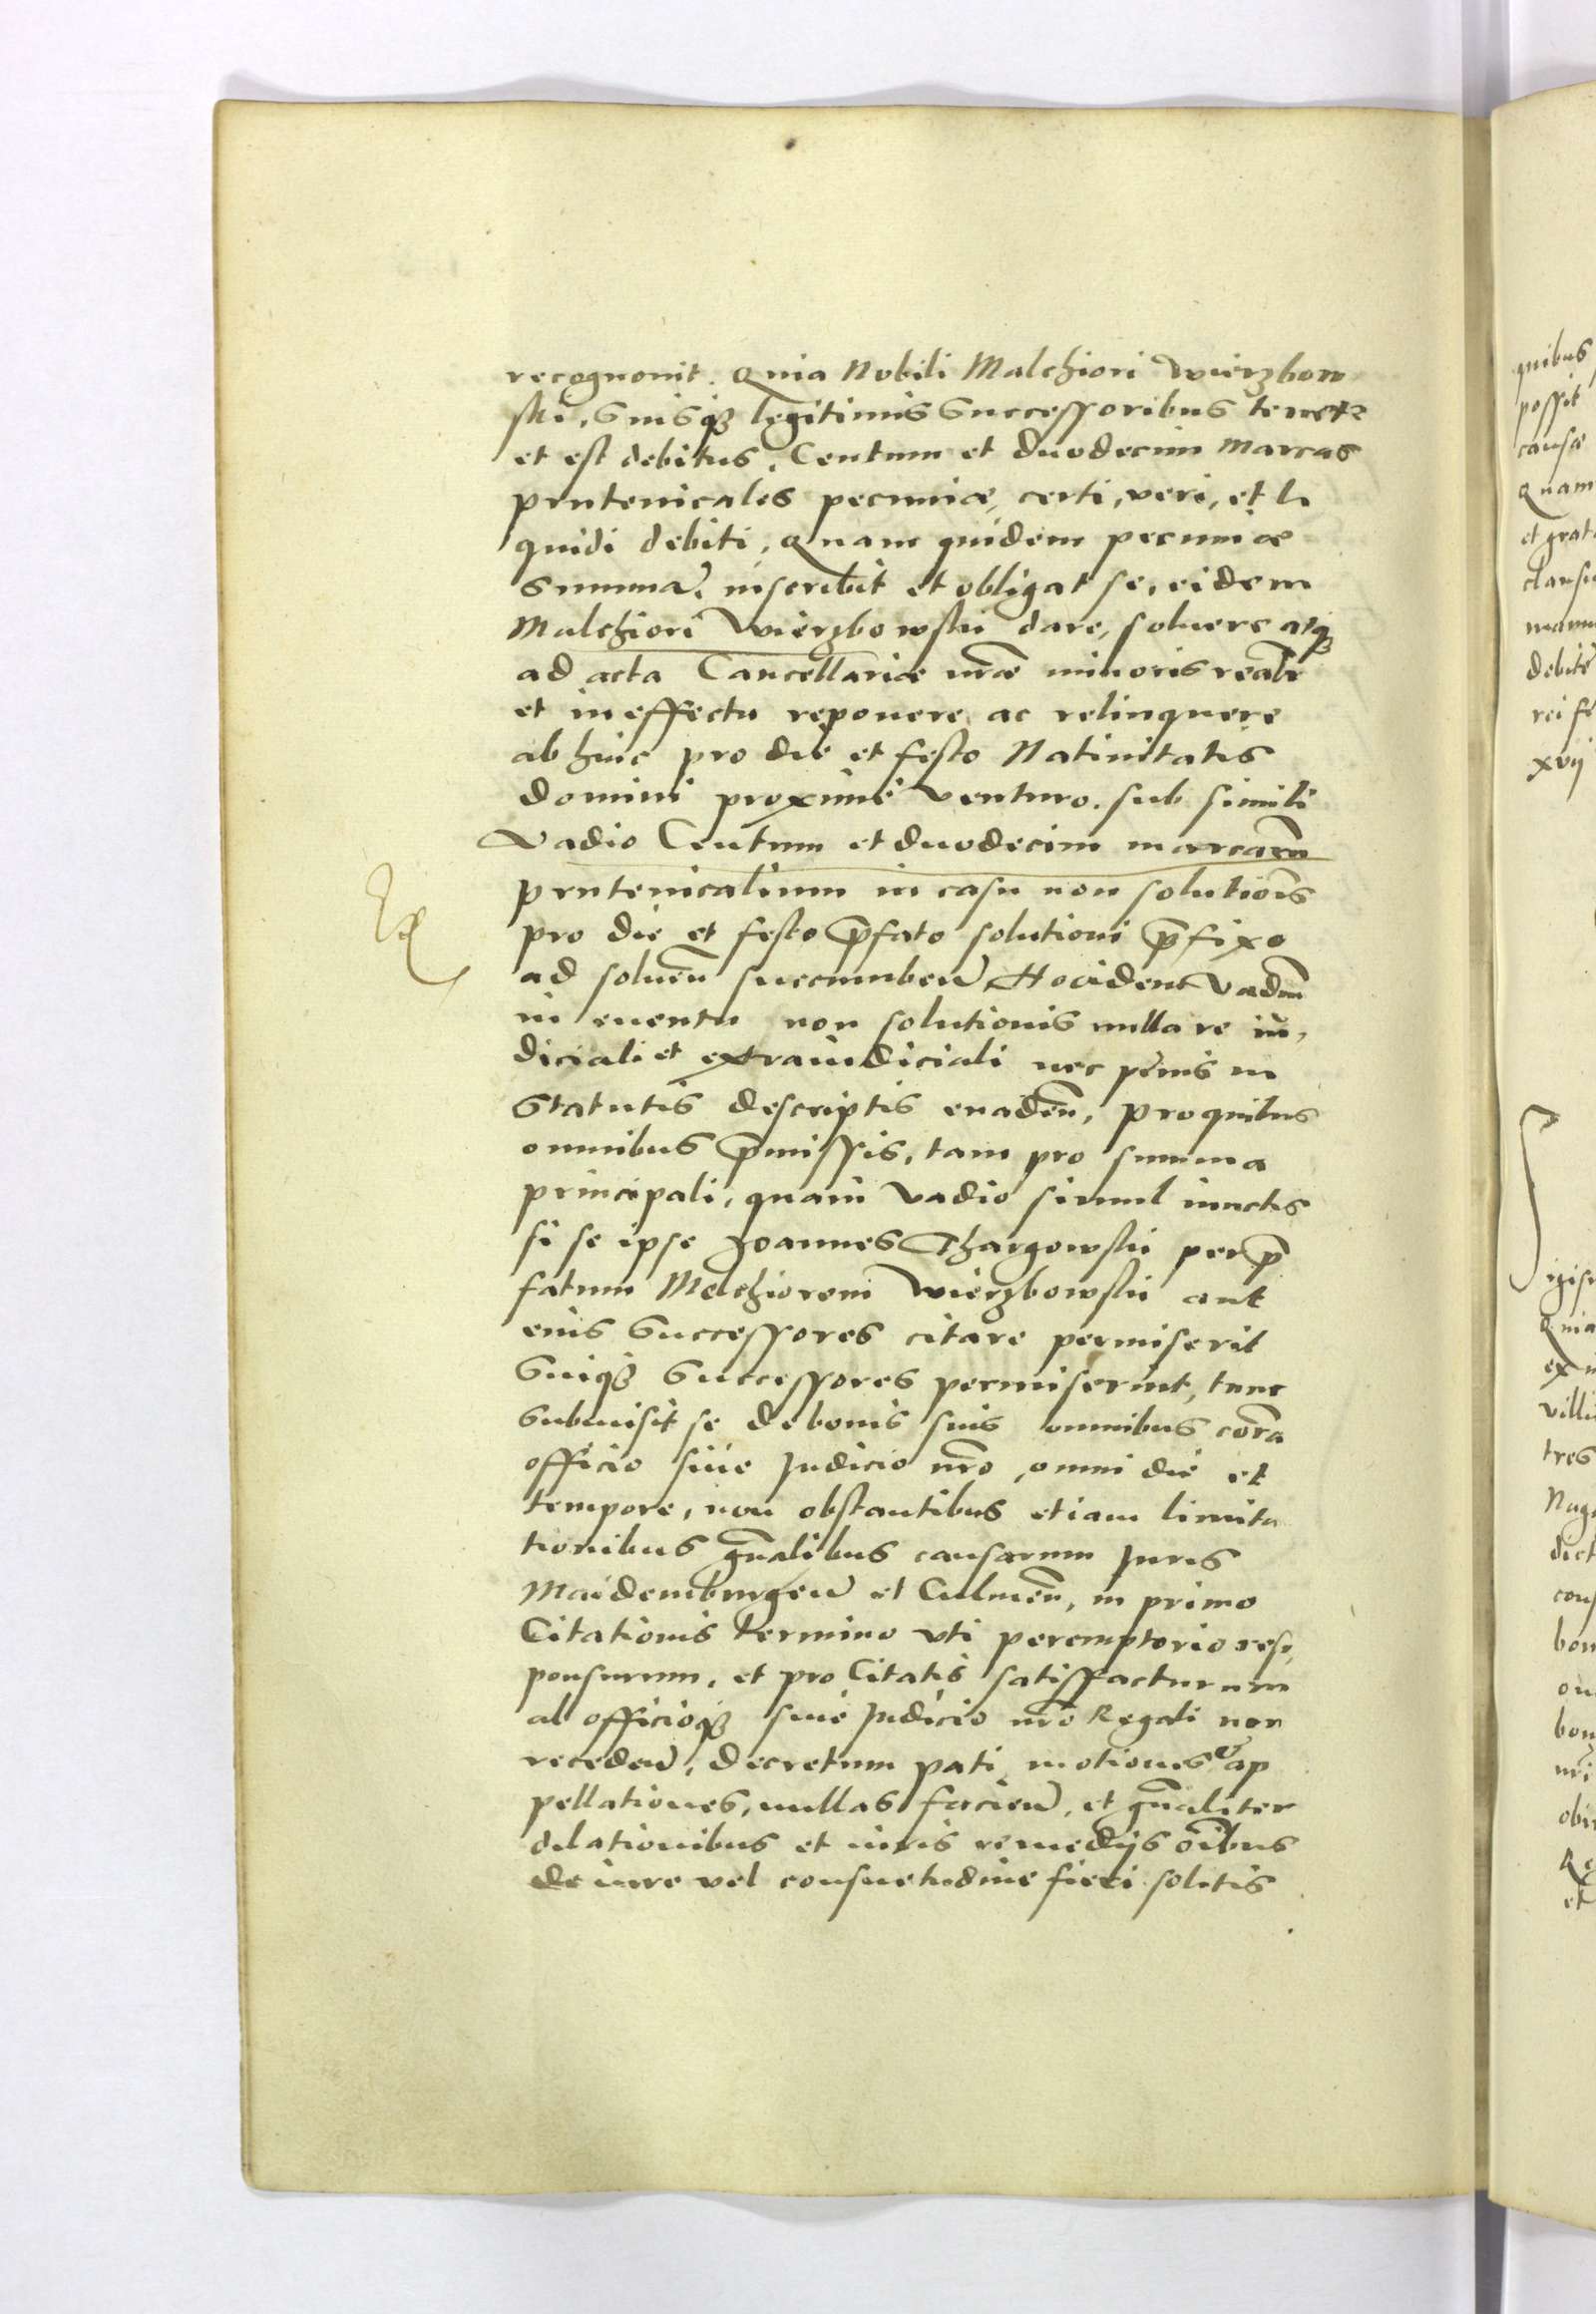 recognouit. Quia Nobili Malchiori Wierzbow
ski, Suisqȝ legitimis Successoribus tenetr
et est debitus, Centum et duodecim Marcas
prutenicales pecuniæ, certi, veri, et li
quidi debiti, Quam quidem pecuniæ
Summã, inscribit et obligat se, eidem
Malchiori Wierzbowski dare, soluere atqȝ
ad acta Cancellariæ nr̃æ minoris realr̃
et in effectu reponere ac relinquere
ab hinc pro die et festo Natiuitatis
domini proxime venturo. sub simili
Vadio Centum et duodecim marcarũ
prutenicalium in casu non solutiõis
pro die et festo p̃fato solutioni p̃fixo
ad soluen̄ succumbeñ. Hocidem vadiũ
in euentu non solutionis nulla re iu,
diciali et extraiudiciali nec penis in
Statutis descriptis euaden̄, pro quibus
omnibus p̃missis, tam pro summa
principali, quam vadio simul iunctis
si se ipse Joannes Thargowski per p̃
fatum Melchiorem Wierzbowski aut
eius Successores citare permiserit
Suiqȝ Successores permiserint, tunc
Submisit se de bonis suis omnibus corã
officio siue Judicio nr̃o, omni die et
tempore, non obstantibus etiam limita
tionibus gñalibus causarum Juris
Maidemburgeñ et Culmen̄, in primo
Citationis termino vti peremptorio res,
ponsurum, et pro Citatis satisfacturum
ab officioqȝ siue Judicio nr̃o Regali non
recedeñ, decretum pati, motiones et ap
pellationes, nullas facieñ, et gñaliter
dilationibus et iuris remedijs oĩbus
de iure vel consuetudine fieri solitis
quibus
possit
causæ
Quam
et grat
clausu
manu
debite
rei fi
xvij
Quia
ex
villa
tres
dict
cons
bon
bon
nri
et